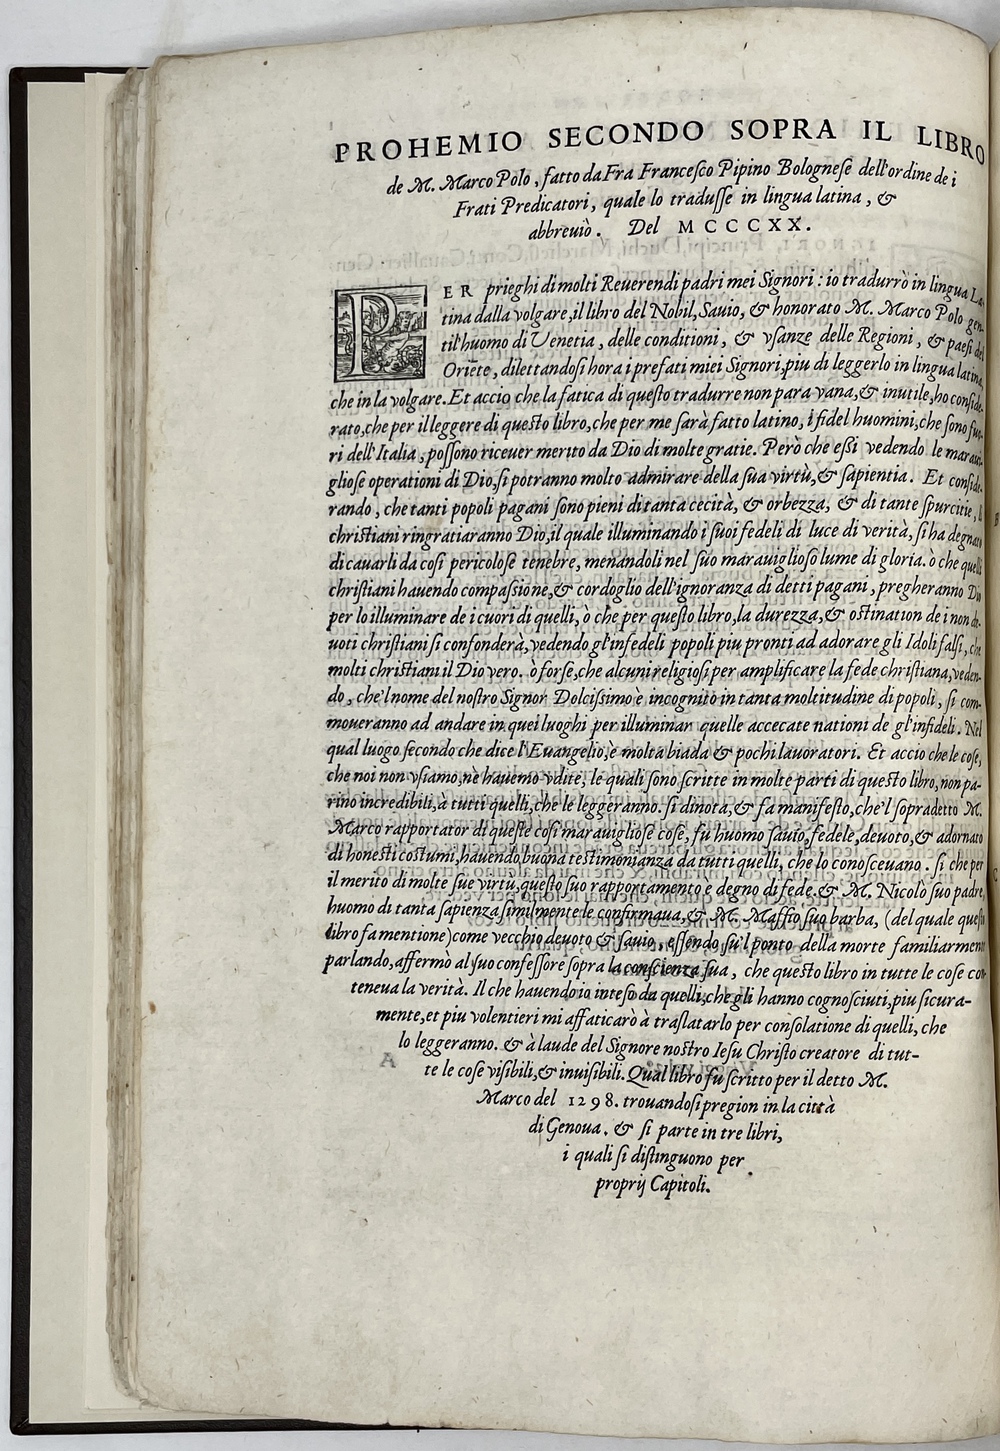 PROHEMIO SECONDO SOPRA IL LIBRO
de M. Marco Polo, fatto da Fra Francesco Pipino Bolognese dell'ordine de i
Frati Predicatori, quale lo tradusse in lingua latina, &
abbreuiò. Del MCCCXX.
PER prieghi di molti Reuerendi padri mei Signori: io tradurrò in lingua La-
tina dalla volgare, il libro del Nobil, Sauio, & honorato M. Marco Polo gen-
til'huomo di Venetia, delle conditioni, & vsanze delle Regioni, & paesi del
Oriẽte, dilettandosi hora i prefati miei Signori, piu di leggerlo in lingua latina,
che in la volgare. Et accio che la fatica di questo tradurre non para vana, & inutile, ho conside-
rato, che per il leggere di questo libro, che per me sarà fatto latino, i fidel huomini, che sono fuo-
ri dell'Italia, possono riceuer merito da Dio di molte gratie. Però che essi vedendo le maraui-
gliose operationi di Dio, si potranno molto admirare della sua virtù, & sapientia. Et conside-
rando, che tanti popoli pagani sono pieni di tanta cecità, & orbezza, & di tante spurcitie, i
christiani ringratiaranno Dio, il quale illuminando i suoi fedeli di luce di verità, si ha degnato
di cauarli da cosi pericolose tenebre, menandoli nel suo marauiglioso lume di gloria. ò che quelli
christiani hauendo compassione, & cordoglio dell'ignoranza di detti pagani, pregheranno Dio
per lo illuminare de i cuori di quelli, ò che per questo libro, la durezza, & ostination de i non de-
uoti christiani si confonderà, vedendo gl'infedeli popoli piu pronti ad adorare gli Idoli falsi, che
molti christiani il Dio vero. ò forse, che alcuni religiosi per amplificare la fede christiana, veden-
do, che'l nome del nostro Signor Dolcissimo è incognito in tanta moltitudine di popoli, si com-
moueranno ad andare in quei luoghi per illuminar quelle accecate nationi de gl'infideli. Nel
qual luogo secondo che dice l'Euangelio, è molta biada & pochi lauoratori. Et accio che le cose,
che noi non vsiamo, nè hauemo vdite, le quali sono scritte in molte parti di questo libro, non pa-
rino incredibili, à tutti quelli, che le leggeranno. si dinota, & fa manifesto, che'l sopradetto M.
Marco rapportator di queste cosi marauigliose cose, fu huomo sauio, fedele, deuoto, & adornato
di honesti costumi, hauendo buona testimonianza da tutti quelli, che lo conosceuano. si che per
il merito di molte sue virtù, questo suo rapportamento è degno di fede. & M. Nicolo suo padre,
huomo di tanta sapienza similmente le confirmaua, & M. Maffio suo barba, (del quale questo
libro fa mentione) come vecchio deuoto & sauio, essendo su'l ponto della morte familiarmente
parlando, affermò al suo confessore sopra la conscienza sua, che questo libro in tutte le cose con-
teneua la verità. Il che hauendo io inteso da quelli, che gli hanno cognosciuti, piu sicura-
mente, et piu volentieri mi affaticarò à traslatarlo per consolatione di quelli, che
lo leggeranno. & à laude del Signore nostro Iesu Christo creatore di tut-
te le cose visibili, & inuisibili. Qual libro fu scritto per il detto M.
Marco del 1298. trouandosi pregion in la città
di Genoua. & si parte in tre libri,
i quali si distinguono per
proprij Capitoli.